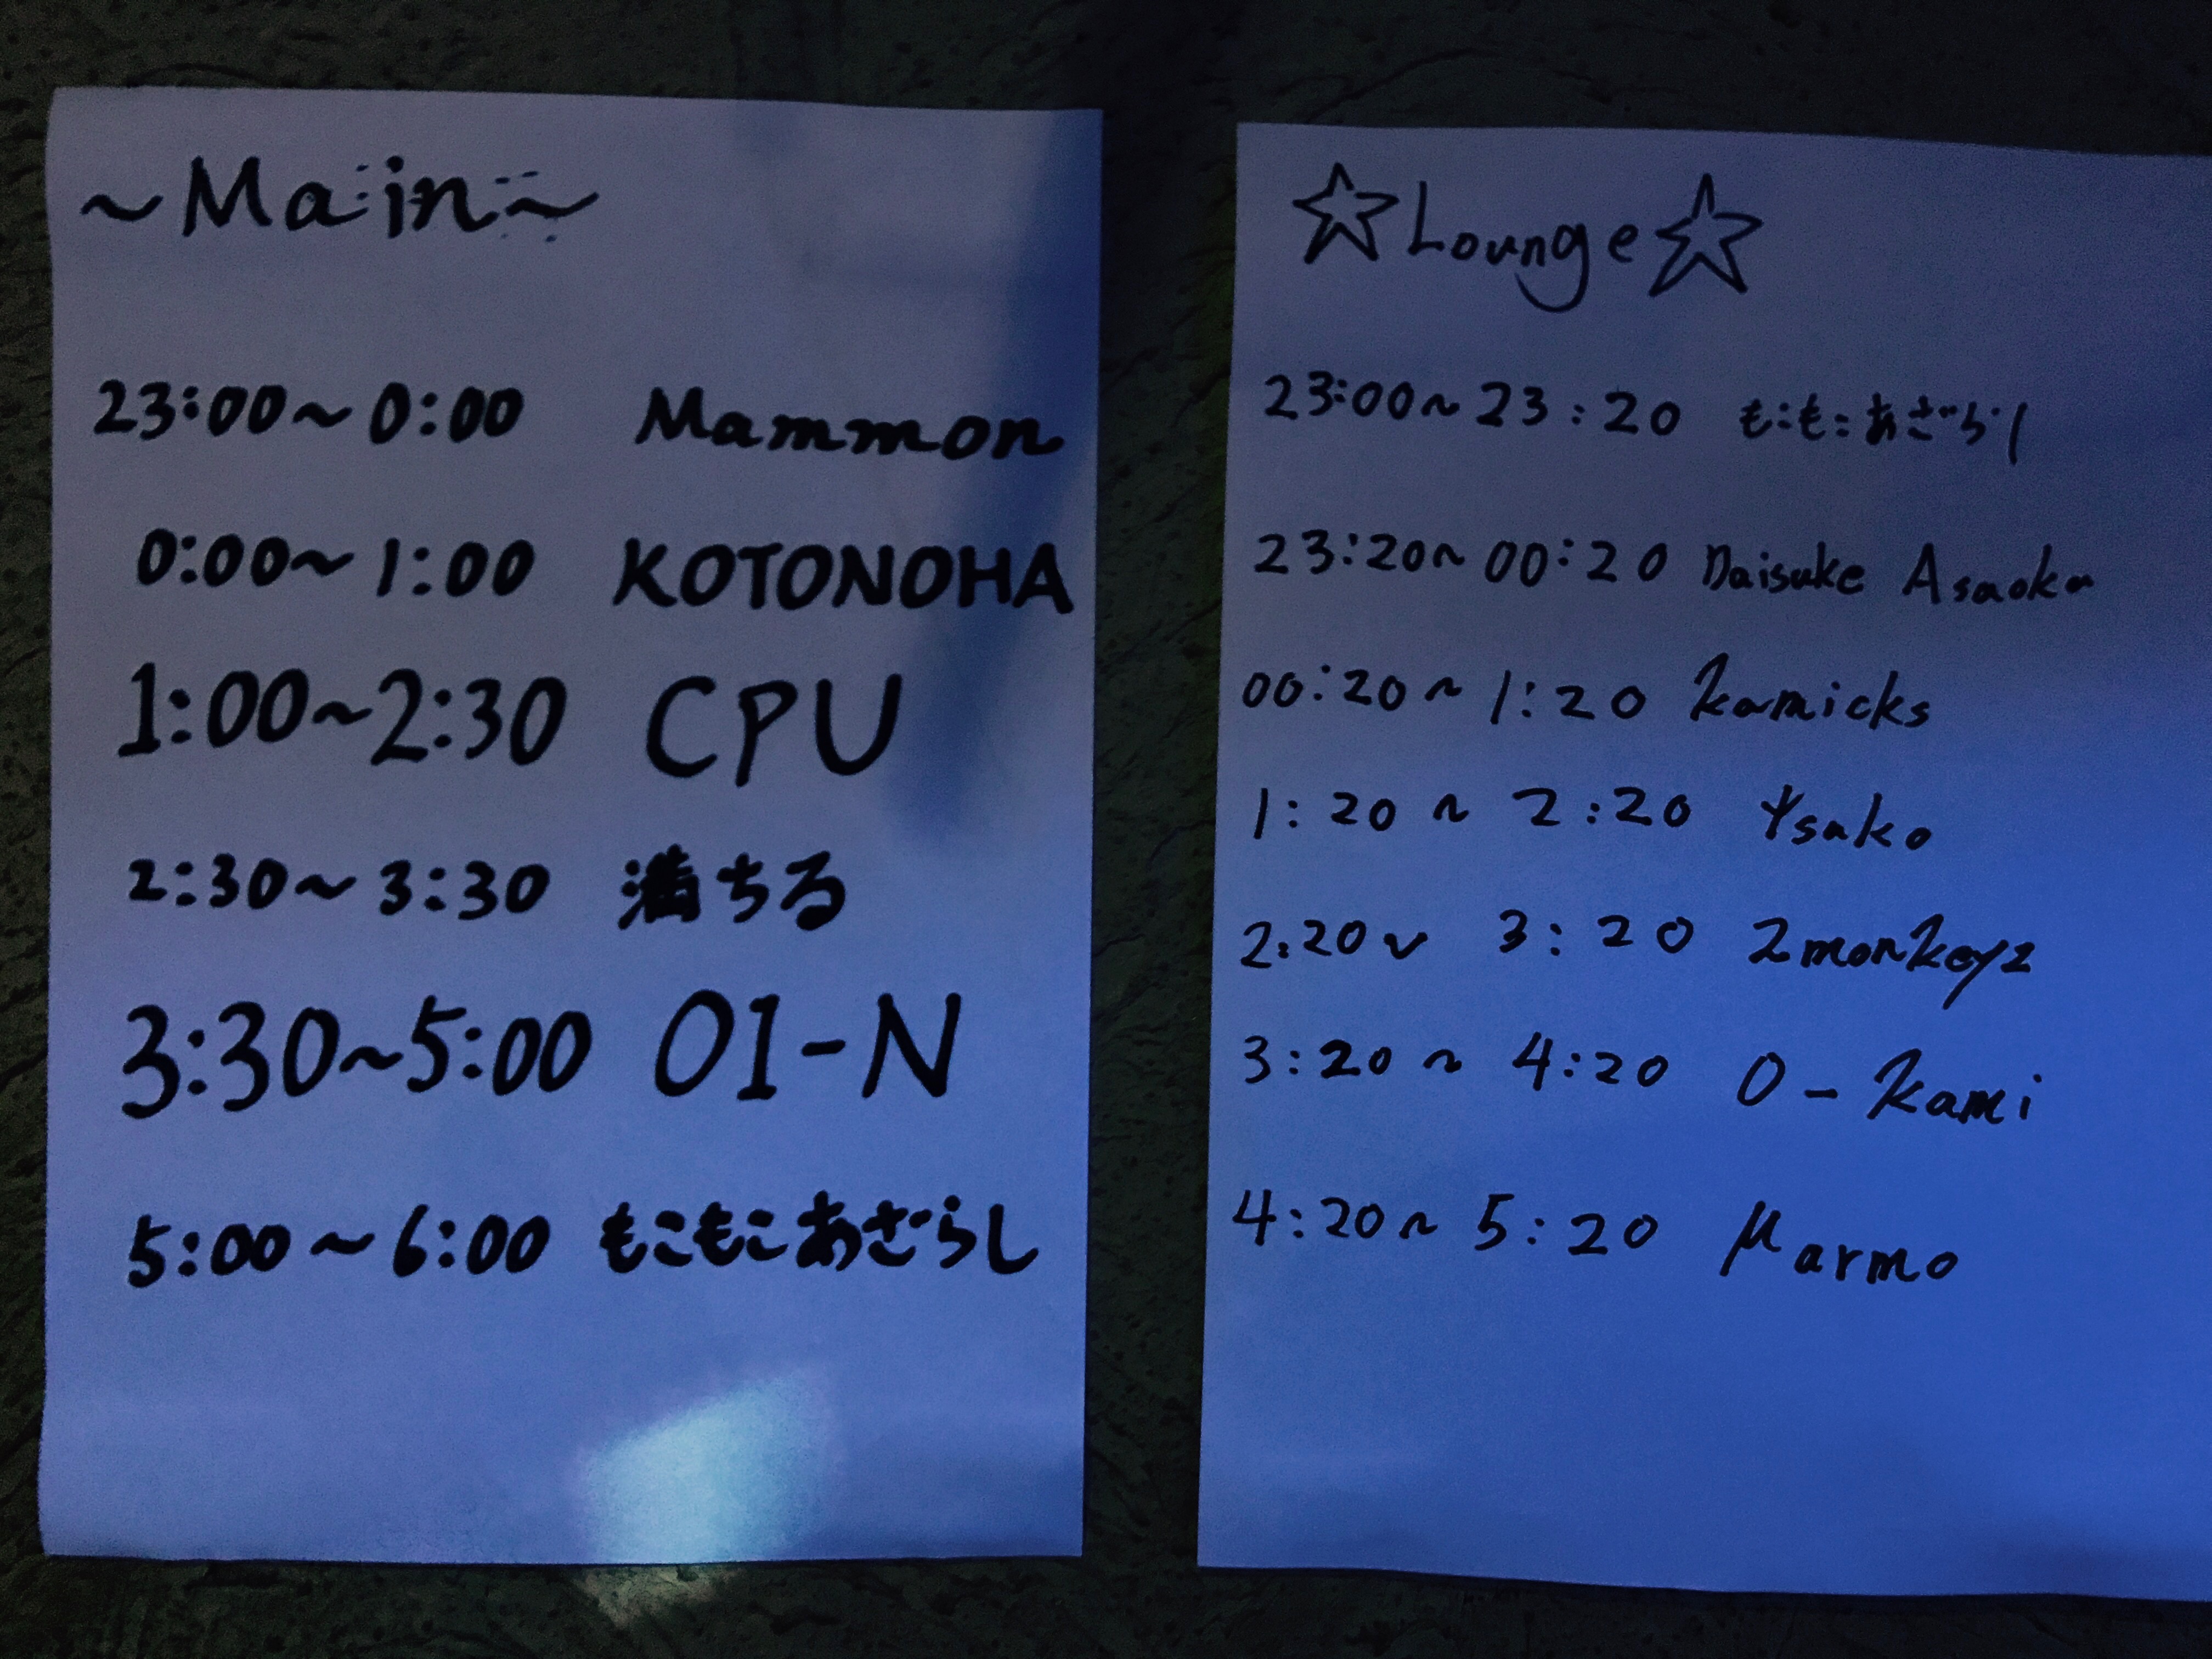 ~Main~
23:00~0:00 Mammon
0:00~1:00 KOTONOHA
1:00~2:30 CPU
2:30~3:30 満ちる
3:30~5:00 OI-N
5:00~6:00 もこもこあざらし
☆Lounge☆
23:00~23:20 もこもこあざらし
23:20~00:20 Daisuke Asaoka
00:20~1:20 kamicks
1:20~2:20 Ysako
2:20~3:20 2monkeyz
3:20~4:20 O-kami
4:20~5:20 μarmo